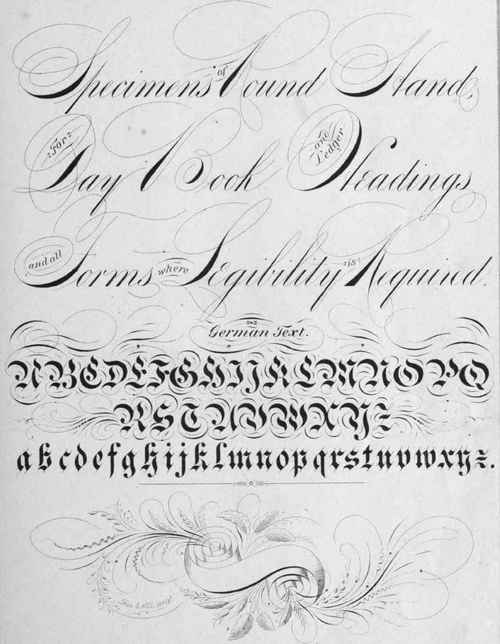 Specimens of Round Hand,
For Day Book and Ledger Headings
and all Forms where Legibility is Required.
German Text.
ABCDEFGHIJKLMNOPQ
RSTUVWXYZ
abcdefghijklmnopqrstuvwxyz.